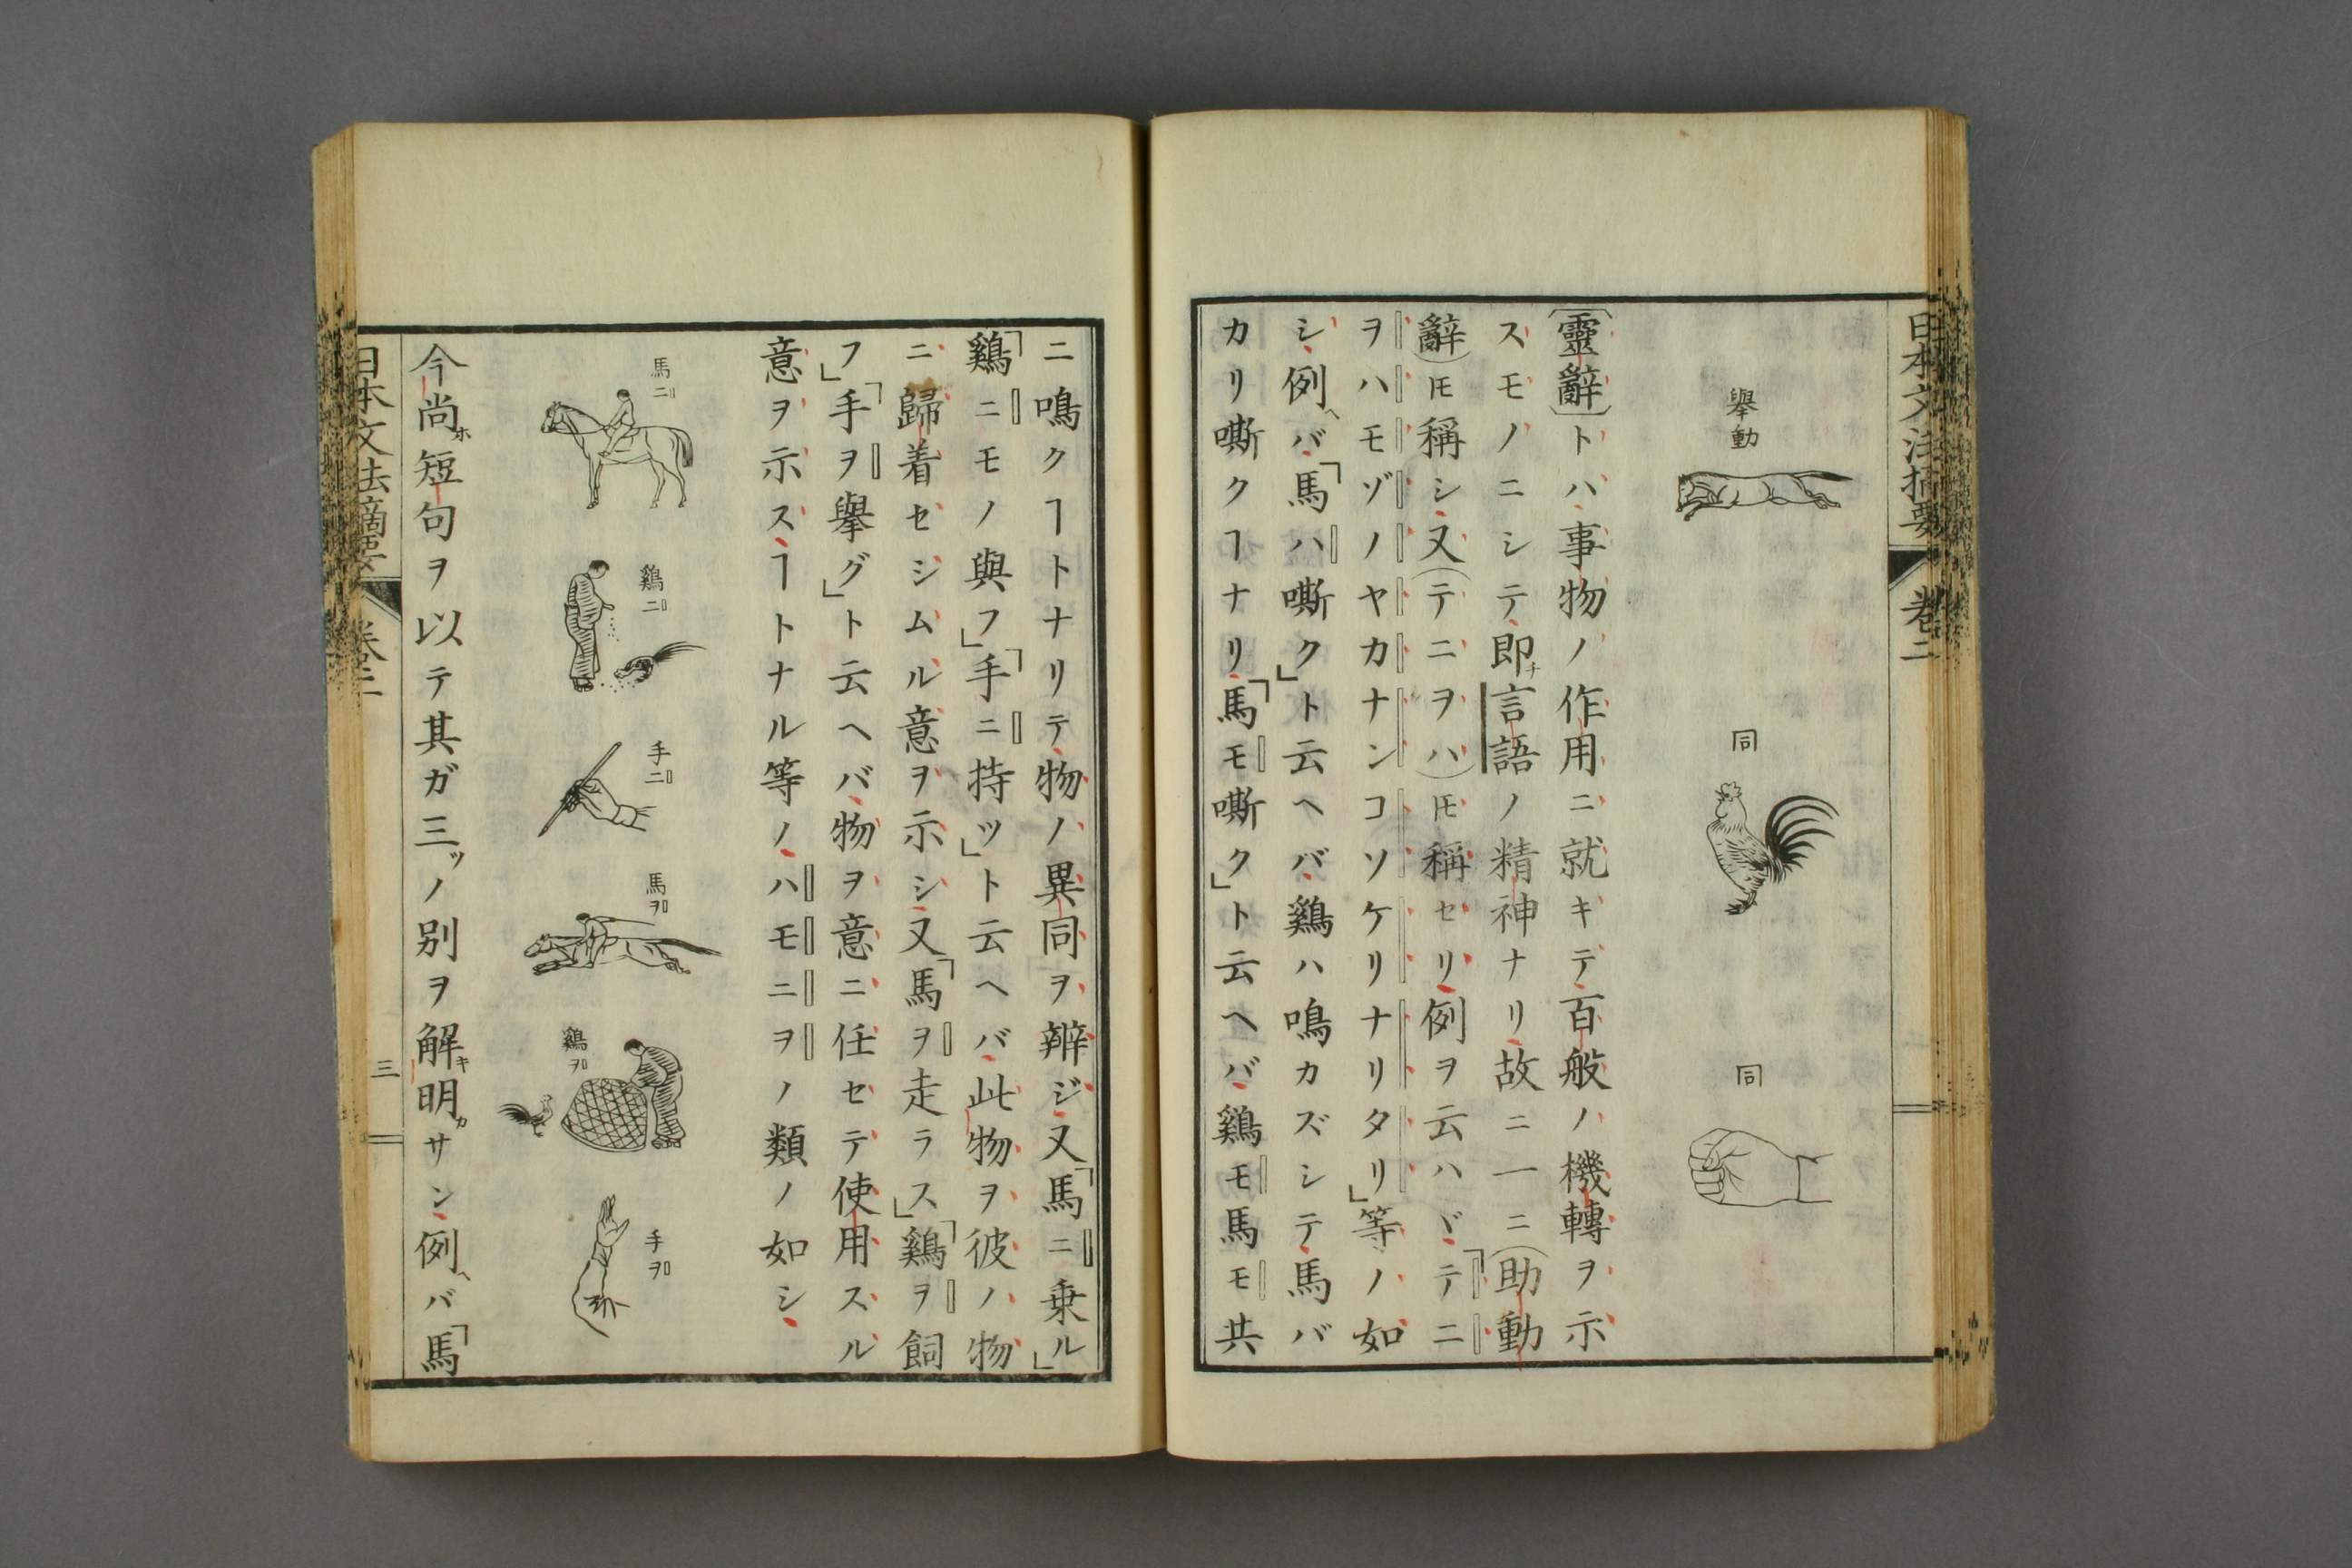 日本文法摘要
卷二
擧動
同
同
〔靈辭〕トハ事物ノ作用ニ就キテ百般ノ機轉ヲ示
スモノニシテ即ナ言語ノ精神ナリ故ニ一ニ(助動
辭)𪜈稱シ又(テニヲハ)𪜈稱セリ例ヲ云ハヾ「テニ
ヲハモゾノヤカナンコソケリナリタリ」等ノ如
シ例ヘバ「馬ハ嘶ク」ト云ヘバ鷄ハ鳴カズシテ馬バ
カリ嘶クヿナリ「馬モ嘶ク」ト云ヘバ鷄モ馬モ共
ニ鳴クヿトナリテ物ノ異同ヲ辨ジ又「馬ニ乗ル」
「鷄ニモノ與フ」「手ニ持ツ」ト云ヘバ此物ヲ彼ノ物
ニ歸着セシムル意ヲ示シ又「馬ヲ走ラス」「鷄ヲ飼
フ」「手ヲ擧グ」ト云ヘバ物ヲ意ニ任セテ使用スル
意ヲ示スヿトナル等ノハモニヲノ類ノ如シ
馬ニ
鷄ニ
手ニ
馬ヲ
鷄ヲ
手ヲ
今尚ホ短句ヲ以テ其ガ三ツノ別ヲ解キ明カサン例ヘバ「馬
日本文法摘要
卷二
三